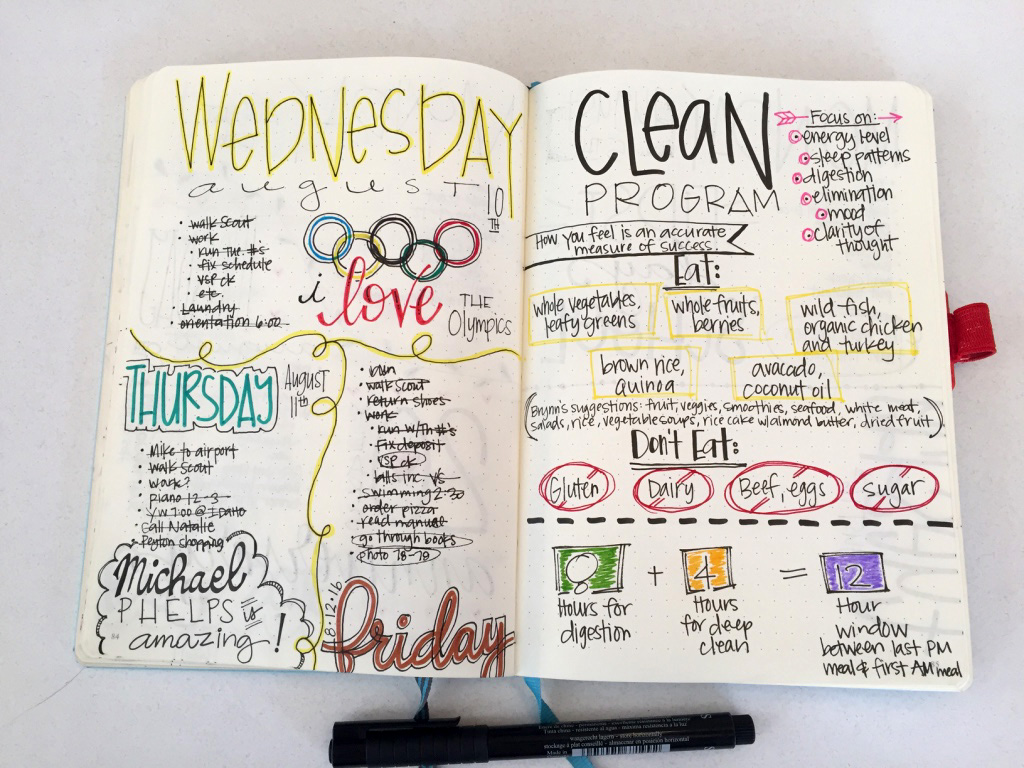 WEDNESDAY
august 10TH
walk Scout
work
run The. #'s
fix schedule
VSP ck
etc.
Laundry
orientation 6:00
i love
THE
Olympics
THURSDAY
August
11th
Mike to airport
walk Scout
work?
piano 12-3
Y.W 7:00 @
Call Natalie
Peyton shopping
Michael
PHELPS is
amazing!
run
walk Scout
return shoes
work
run W/Th #'s
Fix deposit
VSP ck
swimming 2-3:30
order pizza
read manual
go through books
photo 78-79
8·12·16
friday
CLEAN
PROGRAM
Focus on:
energy level
sleep patterns
digestion
elimination
mood
clarity of
thought
How you feel is an accurate
measure of success.
Eat:
whole vegetables,
leafy greens
whole fruits,
berries
wild fish,
organic chicken
and turkey
brown rice,
quinoa
avocado,
coconut oil
(Brynn's suggestions: fruit, veggies, smoothies, seafood, white meat,
salads, rice, vegetable soups, rice cake w/almond butter, dried fruit)
Don't Eat:
Gluten
Dairy
Beef, eggs
sugar
8 + 4 = 12
Hours for
digestion
Hours
for deep
clean
Hour
window
between last PM
meal & first AM meal
waagerecht lagern - store horizontally
stockage à plat conseillé - almacenar en posición horizontal
Made in